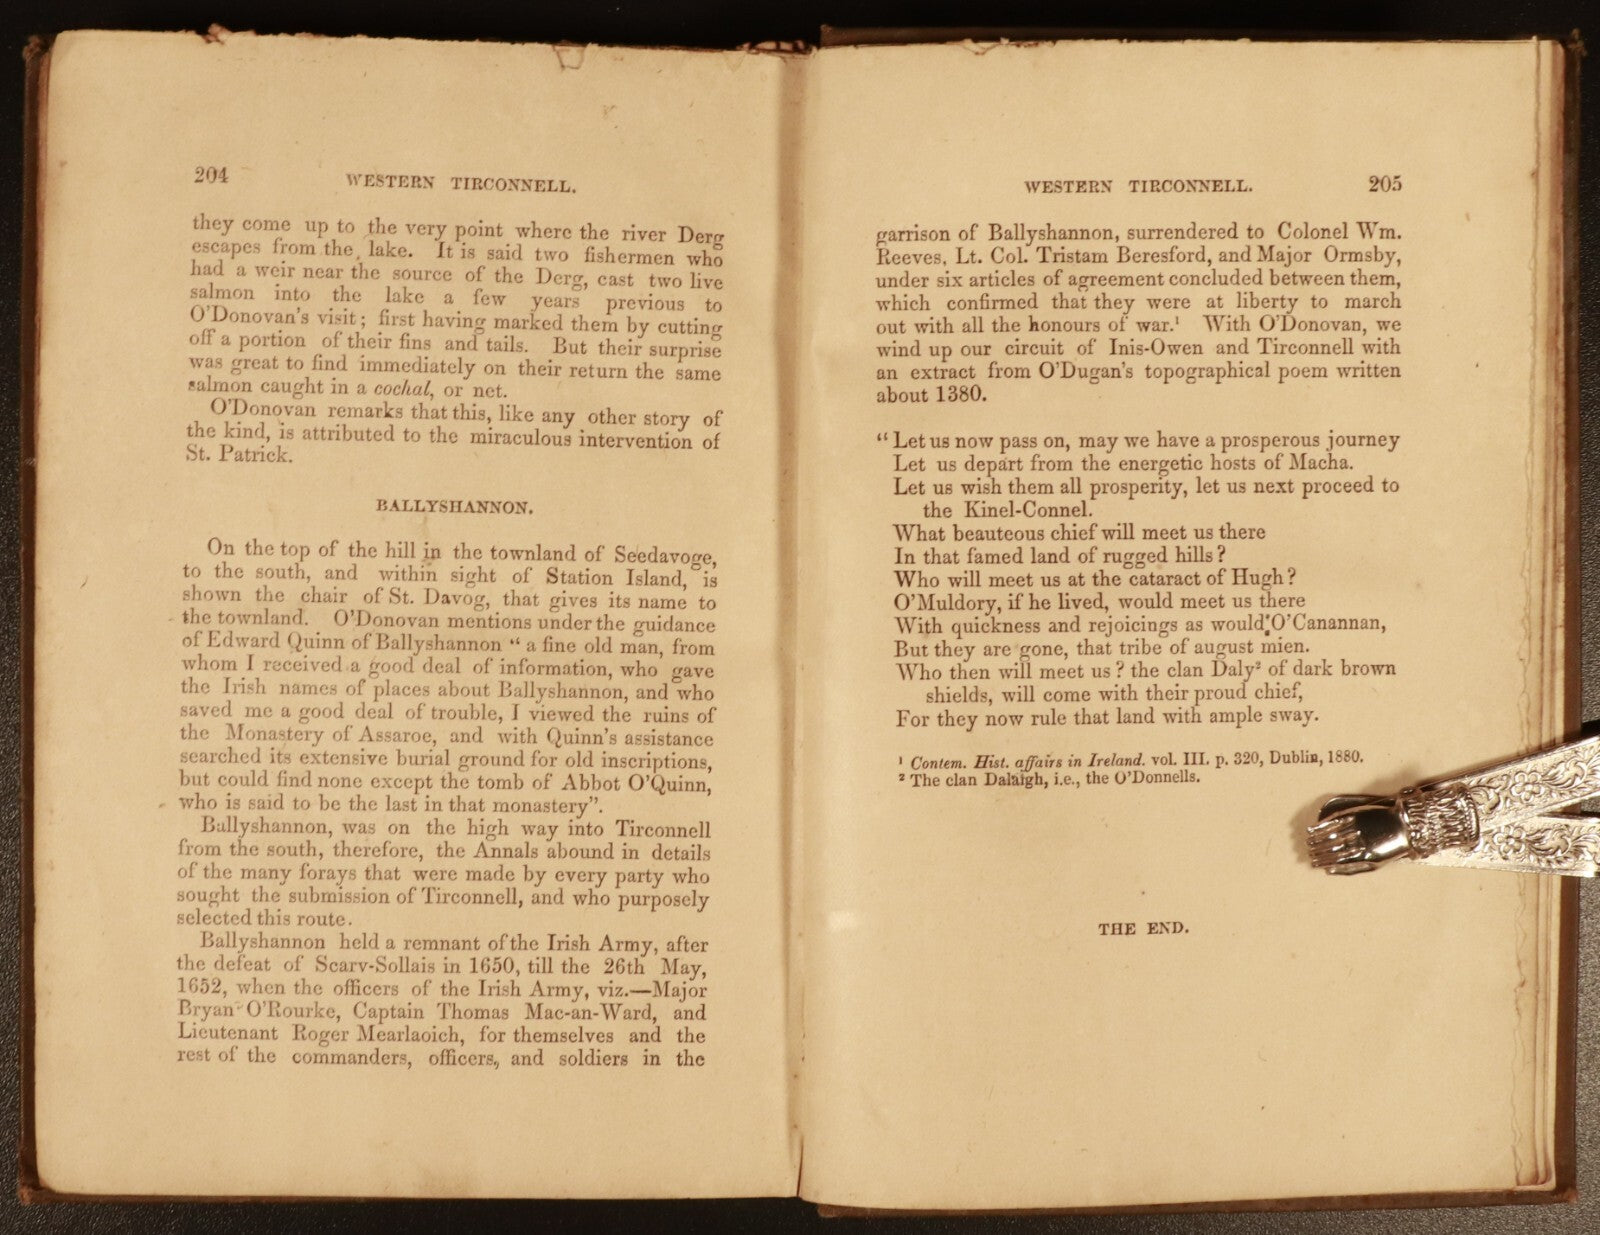 204
WESTERN TIRCONNELL.
they come up to the very point where the river Derg
escapes from the lake. It is said two fishermen who
had a weir near the source of the Derg, cast two live
salmon into the lake a few years previous to
O'Donovan's visit; first having marked them by cutting
off a portion of their fins and tails. But their surprise
was great to find immediately on their return the same
salmon caught in a cochal, or net.
O'Donovan remarks that this, like any other story of
the kind, is attributed to the miraculous intervention of
St. Patrick.
BALLYSHANNON.
On the top of the hill in the townland of Seedavoge,
to the south, and within sight of Station Island, is
shown the chair of St. Davog, that gives its name to
the townland. O'Donovan mentions under the guidance
of Edward Quinn of Ballyshannon “ a fine old man, from
whom I received a good deal of information, who gave
the Irish names of places about Ballyshannon, and who
saved me a good deal of trouble, I viewed the ruins of
the Monastery of Assaroe, and with Quinn's assistance
searched its extensive burial ground for old inscriptions,
but could find none except the tomb of Abbot O'Quinn,
who is said to be the last in that monastery”.
Ballyshannon, was on the high way into Tirconnell
from the south, therefore, the Annals abound in details
of the many forays that were made by every party who
sought the submission of Tirconnell, and who purposely
selected this route.
Ballyshannon held a remnant of the Irish Army, after
the defeat of Scarv-Sollais in 1650, till the 26th May,
1652, when the officers of the Irish Army, viz.—Major
Bryan O'Rourke, Captain Thomas Mac-an-Ward, and
Lieutenant Roger Mearlaoich, for themselves and the
rest of the commanders, officers, and soldiers in the
WESTERN TIRCONNELL.
205
garrison of Ballyshannon, surrendered to Colonel Wm.
Reeves, Lt. Col. Tristam Beresford, and Major Ormsby,
under six articles of agreement concluded between them,
which confirmed that they were at liberty to march
out with all the honours of war.¹ With O'Donovan, we
wind up our circuit of Inis-Owen and Tirconnell with
an extract from O'Dugan's topographical poem written
about 1380.
“ Let us now pass on, may we have a prosperous journey
Let us depart from the energetic hosts of Macha.
Let us wish them all prosperity, let us next proceed to
the Kinel-Connel.
What beauteous chief will meet us there
In that famed land of rugged hills?
Who will meet us at the cataract of Hugh?
O'Muldory, if he lived, would meet us there
With quickness and rejoicings as would O'Canannan,
But they are gone, that tribe of august mien.
Who then will meet us? the clan Daly² of dark brown
shields, will come with their proud chief,
For they now rule that land with ample sway.
¹ Contem. Hist. affairs in Ireland. vol. III. p. 320, Dublin, 1880.
² The clan Dalaigh, i.e., the O'Donnells.
THE END.